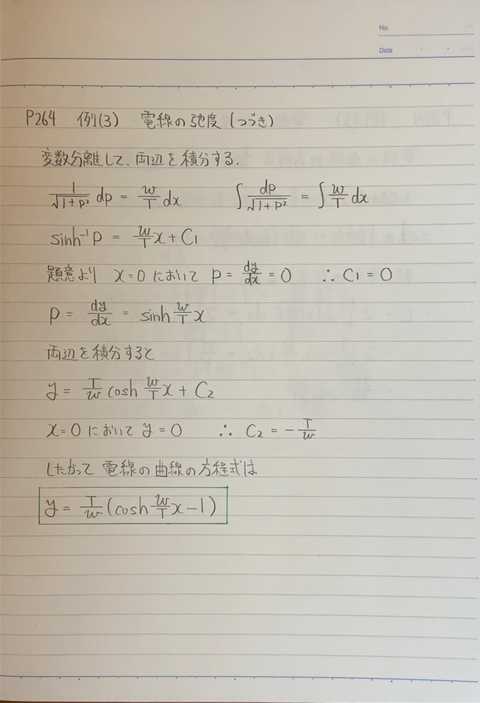 No.
Date
P264 例(3) 電線の弛度(つづき)
変数分離して、両辺を積分する.
1/√(1+p²) dp = w/T dx ∫ dp/√(1+p²) = ∫ w/T dx
sinh⁻¹ p = w/T x + C₁
題意より x=0 において p = dy/dx = 0 ∴ C₁ = 0
p = dy/dx = sinh w/T x
両辺を積分すると
y = T/w cosh w/T x + C₂
x=0 において y=0 ∴ C₂ = - T/w
したがって 電線の曲線の方程式は
y = T/w (cosh w/T x - 1)